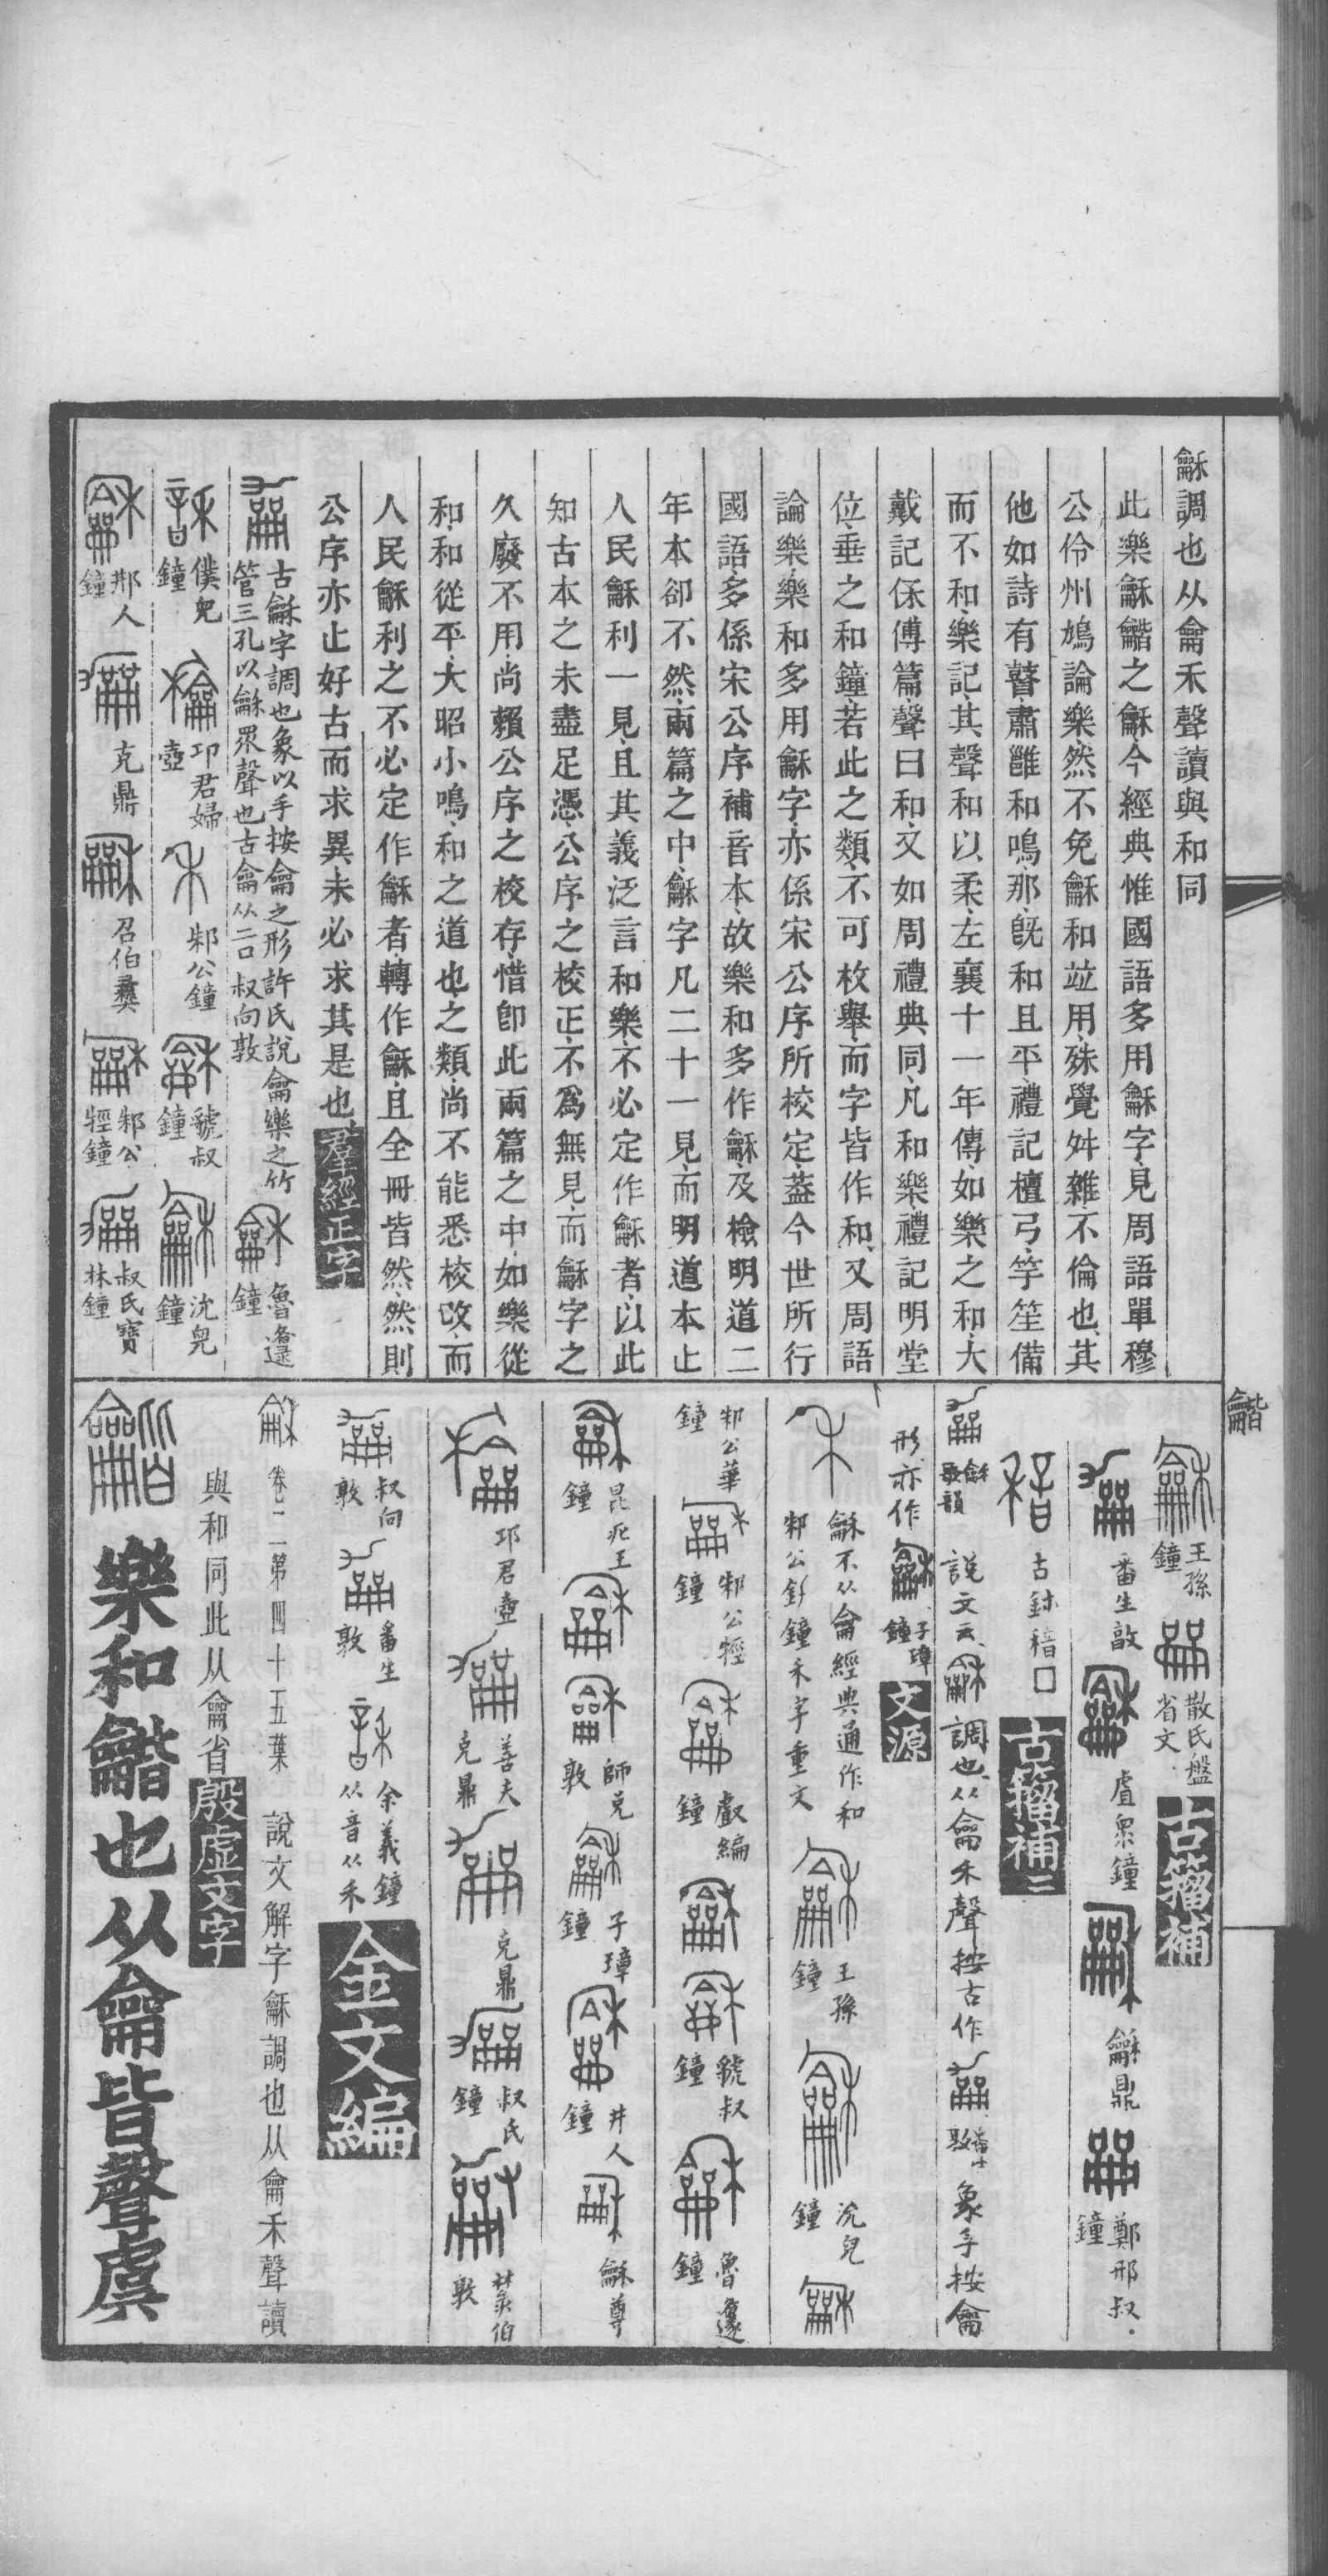 龢調也从龠禾聲讀與和同
此樂龢龤之龢今經典惟國語多用龢字見周語單穆
公伶州鳩論樂然不免龢和竝用殊覺舛雜不倫也其
他如詩有瞽肅雝和鳴那旣和且平禮記檀弓竽笙備
而不和樂記其聲和以柔左襄十一年傳如樂之和大
戴記保傅篇聲曰和又如周禮典同凡和樂禮記明堂
位垂之和鐘若此之類不可枚舉而字皆作和又周語
論樂樂和多用龢字亦係宋公序所校定葢今世所行
國語多係宋公序補音本故樂和多作龢及檢明道二
年本卻不然兩篇之中龢字凡二十一見而明道本止
人民龢利一見且其義泛言和樂不必定作龢者以此
知古本之未盡足憑公序之校正不爲無見而龢字之
久廢不用尚賴公序之校存惜卽此兩篇之中如樂從
和和從平大昭小鳴和之道也之類尚不能悉校改而
人民龢利之不必定作龢者轉作龢且全冊皆然然則
公序亦止好古而求異未必求其是也羣經正字
古龢字調也象以手按龠之形許氏說龠樂之竹
管三孔以龢眾聲也古龠从二口 叔向敦
魯邍鐘
僕兒鐘 邛君婦壺 邾公鐘 虢叔鐘 沇兒鐘
邢人鐘 克鼎 召伯彝 邾公牼鐘 叔氏寶林鐘
龤
王孫鐘 散氏盤省文 古籀補
番生敦 虘眾鐘 龢鼎 鄭邢叔鐘
古鉨 古籀補二
說文云龢調也从龠禾聲按古作 象手按龠
形亦作 子璋鐘 文源
龢不从龠經典通作和
邾公釛鐘禾字重文 王孫鐘 沇兒鐘
邾公華鐘 邾公牼鐘 𠭯編鐘 虢叔鐘 魯邍鐘
昆疕王鐘 師克敦 子璋鐘 井人鐘 龢尊
邛君壺 善夫克鼎 克鼎 叔氏鐘 彔伯敦
叔向敦 番生敦 余義鐘从音从禾 金文編
卷二第四十五葉 說文解字龢調也从龠禾聲讀
與和同此从龠省殷虛文字
樂和龤也从龠皆聲虞